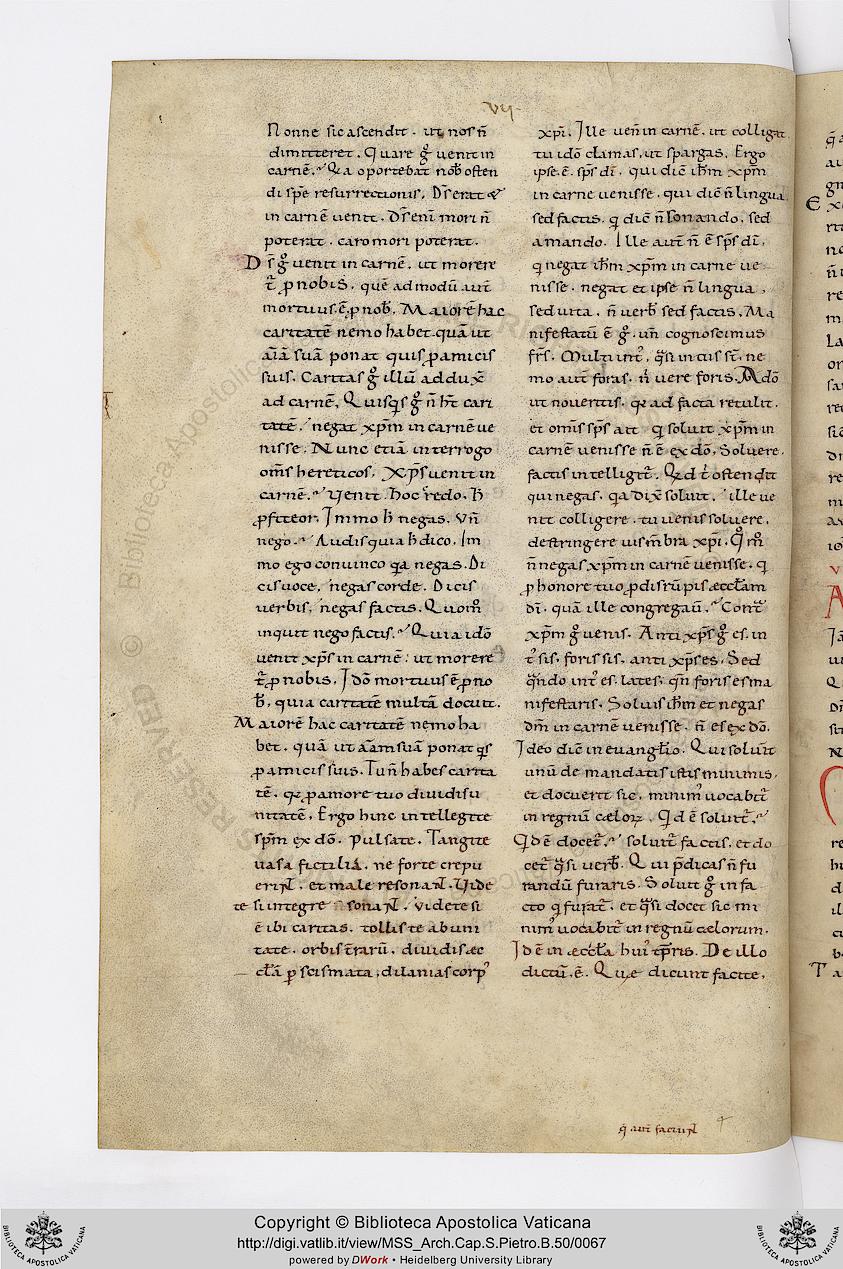 VII
Nonne sic ascendit. ut nos n̄
dimitteret. Quare g̊ uenit in
carnē. Q̄a oportebat nob̄ osten
di spē resurrectionis. Ds̄ erat &
in carnē uenit. Ds̄ enī mori n̄
poterat. caro mori poterat.
Ds̄ g̊ uenit in carnē. ut morere
t̄ ꝓ nobis. quē ad modū aut̄
mortuus. ē. ꝓ nob̄. Maiorē hac
caritatē nemo habet quā ut
aīā suā ponat quis ꝓ amicis
suis. Caritas g̊ illū addux̄
ad carnē. Quisq̄s g̊ n̄ ht̄ cari
tatē. negat xp̄m in carnē ue
nisse. Nunc etiā interrogo
om̄s hereticos. Xp̄s uenit in
carnē. Uenit. hoc credo. h̄
ꝓfiteor. Immo h̄ negas. Vn̄
nego. Audis quia h̄ dico. Im
mo ego conuinco q̄a negas. Di
cis uoce. negas corde. Dicis
uerbis. negas factis. Quom̄
inquit nego factis. Quia idō
uenit xp̄s in carnē: ut morere
t̄ ꝓ nobis. Idō mortuus ē ꝓ no
b̄. quia caritatē multā docuit.
Maiorē hac caritatē nemo ha
bet. quā ut aīam suā ponat q̄s
ꝓ amicis suis. Tu n̄ habes carita
tē. qꝛ ꝓ amore tuo diuidis u
nitatē. Ergo hinc intellegite
spm̄ ex dō. Pulsate. Tangite
uasa fictilia. ne forte crepu
erint. et male resonant. Uide
te si integre sonant. Videte si
ē ibi caritas. tollis te ab uni
tate. orbis t̄rarū. diuidis æc
cl̄ā ꝑ scismata. dilanias corp᾽
xp̄i. Ille uen̄ in carnē. ut colligat.
tu idō clamas. ut spargas. Ergo
ipse. ē. sp̄s dī. qui dic̄ ih̄m xp̄m
in carne uenisse. qui dic̄ n̄ lingua
sed factis. q̄ dic̄ n̄ sonando. sed
amando. Ille aut̄ n̄ ē sp̄s dī.
q̄ negat ih̄m xp̄m in carne ue
nisse. negat et ipse n̄ lingua.
sed uita. n̄ uerb̄ sed factis. Ma
nifestatū ē g̊. un̄ cognoscimus
fr̄s. Multi int᾽. q̄si intus st̄. ne
mo aut̄ foras. n̄ uere foris. Adō
ut noueritis. qꝛ ad facta retulit.
et om̄is sp̄s ait q̄ soluit xp̄m in
carnē uenisse n̄ ē ex dō. Soluere.
factis intelligit̄. Q̄d t̄ ostendit
qui negas. q̄a dix̄ soluit. ille ue
nit colligere. tu uenis soluere.
destringere uis m̄bra xp̄i. Q̊m̄
n̄ negas xp̄m in carnē uenisse. q̄
ꝓ honore tuo ꝓ disrūpis æccl̄am
dī. quā ille congregau̅. Cont̄
xp̄m g̊ uenis. Anti xp̄s g̊ es. in
t᾽ sis. foris sis. anti xp̄s es. Sed
q̄ndo int᾽ es. lates. q̄n foris es ma
nifestaris. Soluis ih̄m et negas
dm̄ in carnē uenisse. n̄ es ex dō.
Ideo dic̄ in euangl̄io. Qui solu̅it
unū de mandatis istis minimis.
et docuerit sic. minim᾽ uocabit̄
in regnū cæloꝝ. Q̄d ē soluit̄.
Q̄d ē docet̄. soluit̄ factis. et do
cet̄ q̄si uerb̄. Qui p̄dicas n̄ fu
randū furaris. Soluit g̊ in fa
cto q̄ furat̄. et q̄si docet sic mi
nim᾽ uocabit̄ in regnū cælorum.
Id ē in æccl̄a hui᾽ tp̄ris. De illo
dictū. ē. Quæ dicunt facite.
q̄ aut̄ faciunt
Copyright © Biblioteca Apostolica Vaticana
http://digi.vatlib.it/view/MSS_Arch.Cap.S.Pietro.B.50/0067
powered by DWork • Heidelberg University Library